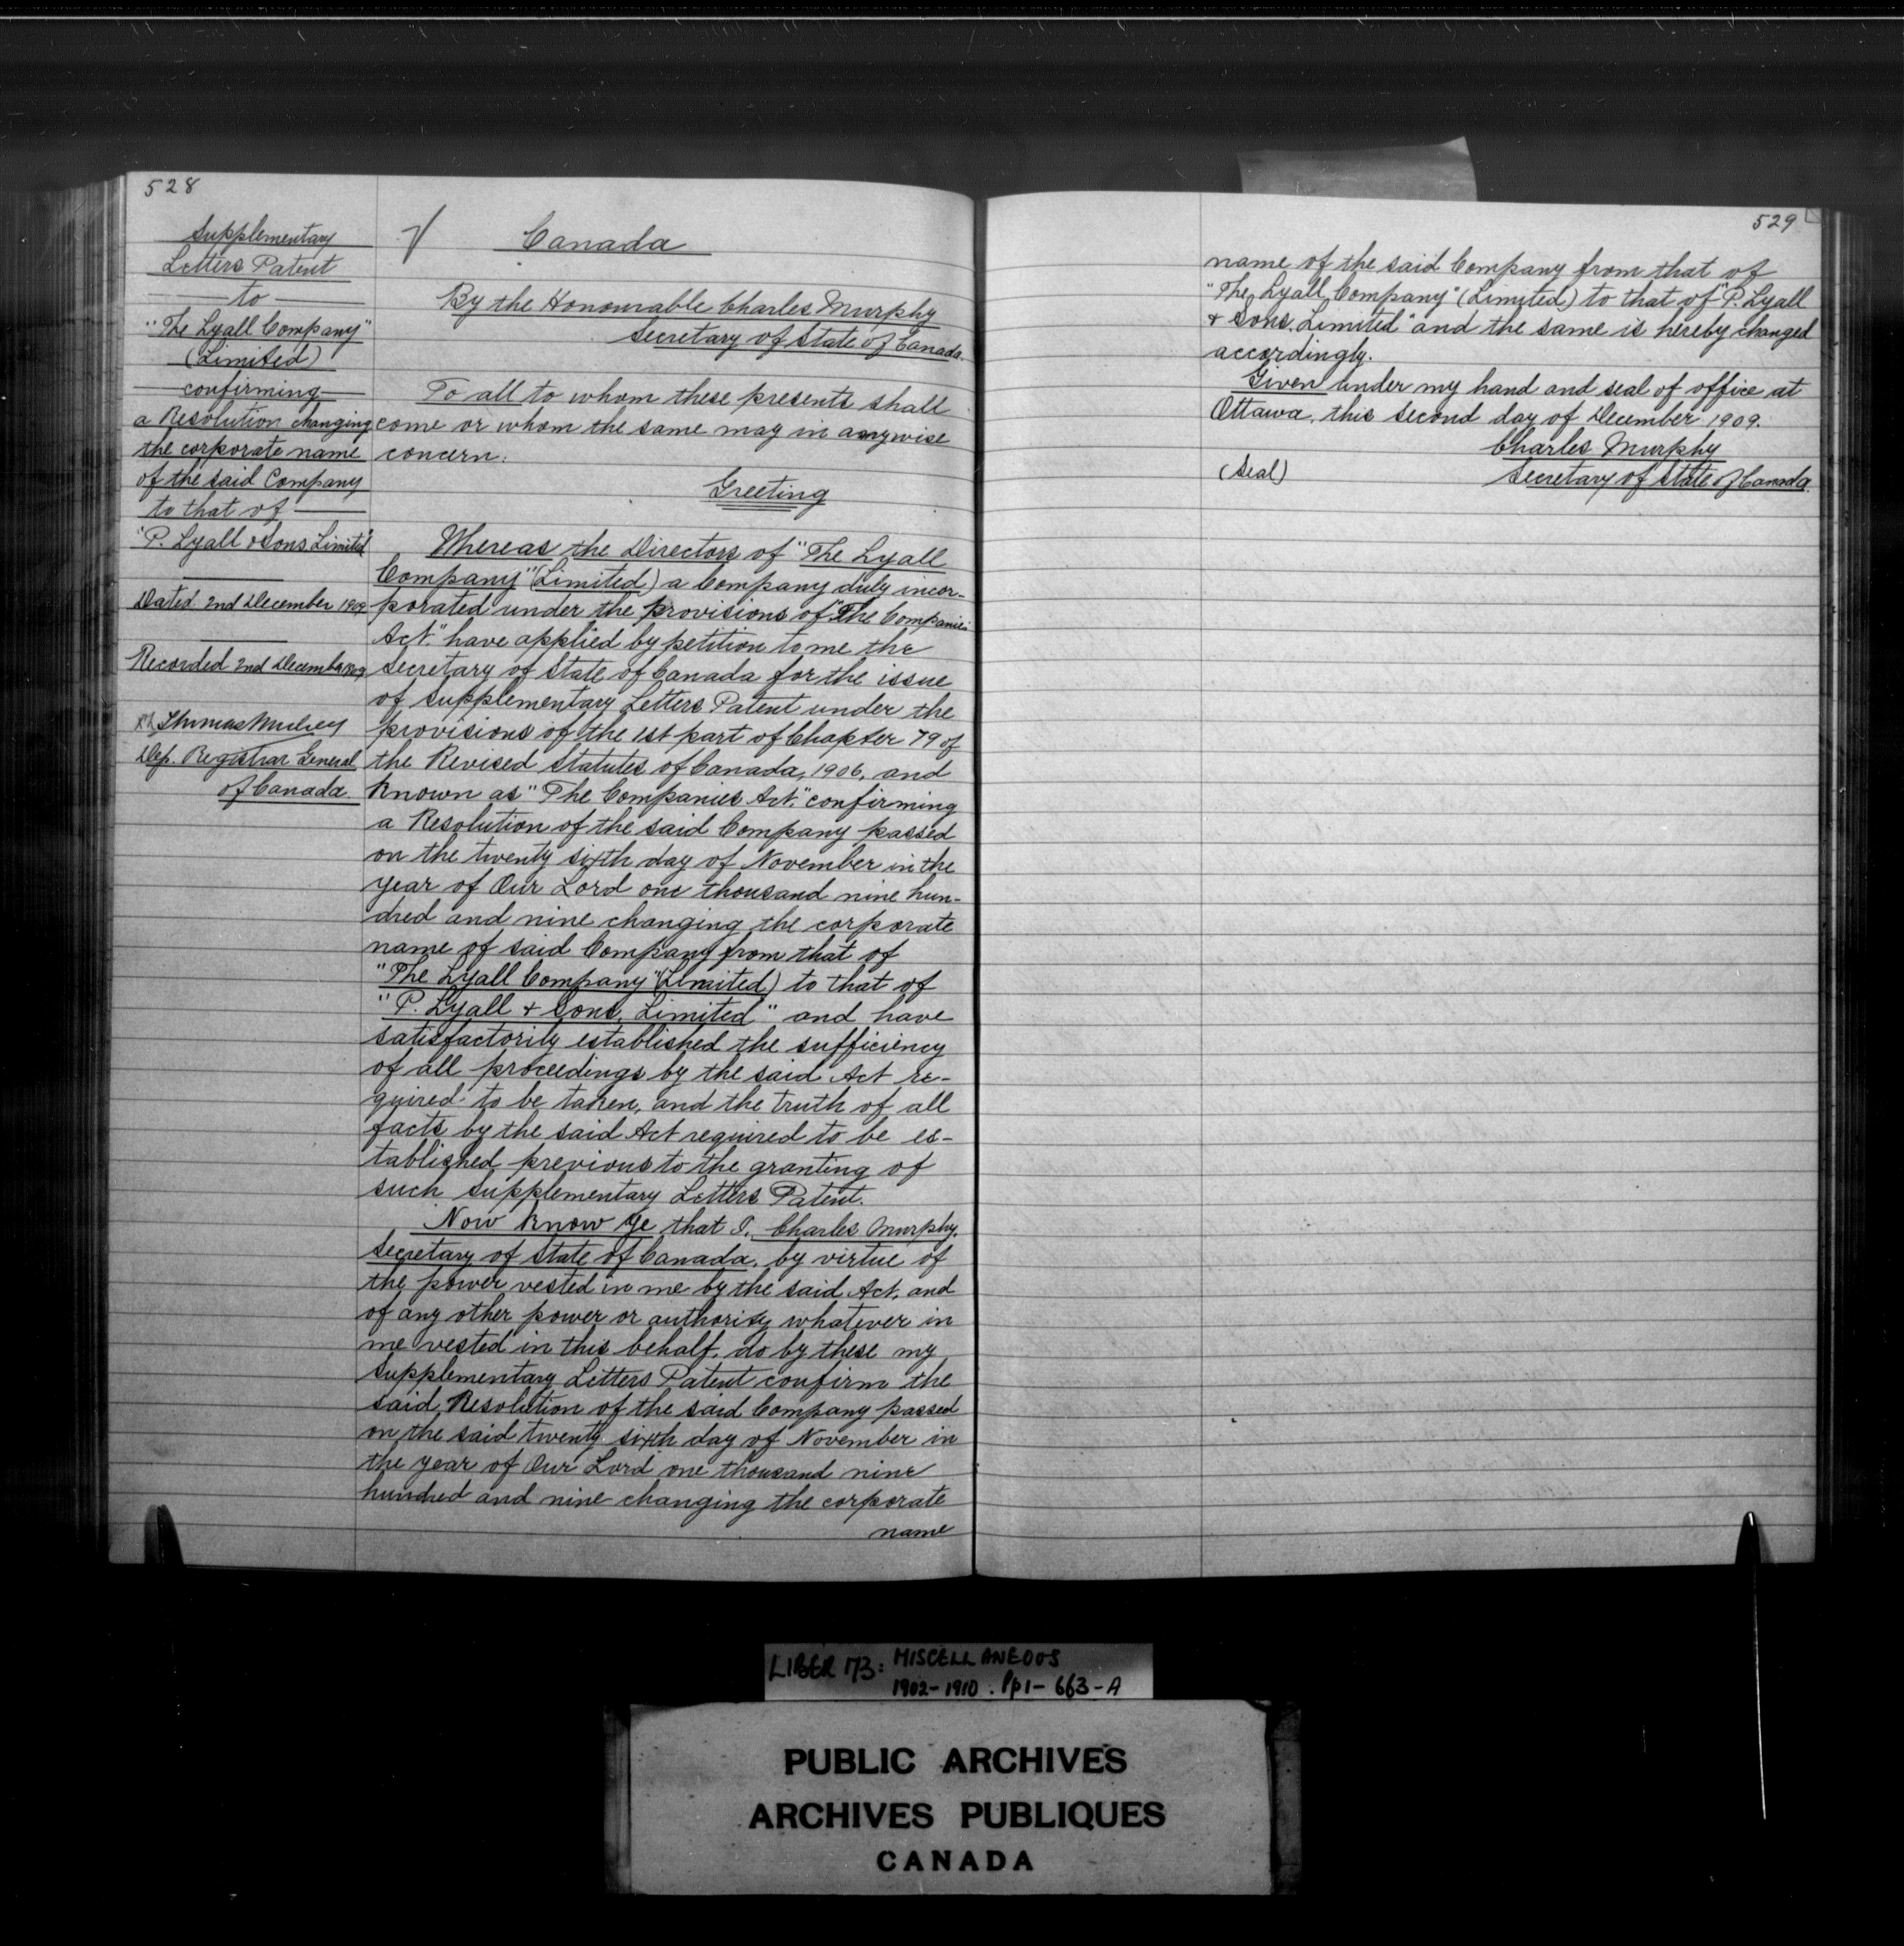 528
Supplementary
Letters Patent
to
"The Lyall Company"
(Limited)
confirming
a Resolution changing
the corporate name
of the said Company
to that of
"P. Lyall & Sons Limited
Dated 2nd December 1909
Recorded 2nd December 1909
Thomas Mulvey
Dep. Registrar General
of Canada.
Canada
By the Honourable Charles Murphy
Secretary of State of Canada.
To all to whom these presents shall
come or whom the same may in anywise
concern:
Greeting
Whereas the Directors of "The Lyall
Company" (Limited) a Company duly incor-
porated under the provisions of "The Companies
Act." have applied by petition to me the
Secretary of State of Canada for the issue
of supplementary Letters Patent under the
provisions of the 1st part of Chapter 79 of
the Revised Statutes of Canada, 1906, and
known as "The Companies Act." confirming
a Resolution of the said Company passed
on the twenty sixth day of November in the
year of Our Lord one thousand nine hun-
dred and nine changing the corporate
name of said Company from that of
"The Lyall Company" (Limited) to that of
"P. Lyall & Sons, Limited" and have
satisfactorily established the sufficiency
of all proceedings by the said Act re-
quired to be taken, and the truth of all
facts by the said Act required to be es-
tablished previous to the granting of
such supplementary Letters Patent.
Now Know Ye that I, Charles Murphy,
Secretary of State of Canada, by virtue of
the power vested in me by the said Act, and
of any other power or authority whatever in
me vested in this behalf, do by these my
Supplementary Letters Patent confirm the
said Resolution of the said Company passed
on the said twenty sixth day of November in
the year of Our Lord one thousand nine
hundred and nine changing the corporate
name
529
name of the said Company from that of
"The Lyall Company" (Limited) to that of "P. Lyall
& Sons, Limited" and the same is hereby changed
accordingly.
Given under my hand and seal of office at
Ottawa, this second day of December 1909.
Charles Murphy
(Seal) Secretary of State of Canada.
LIBER 173: MISCELLANEOUS
1902-1910. Pp1-663-A
PUBLIC ARCHIVES
ARCHIVES PUBLIQUES
CANADA